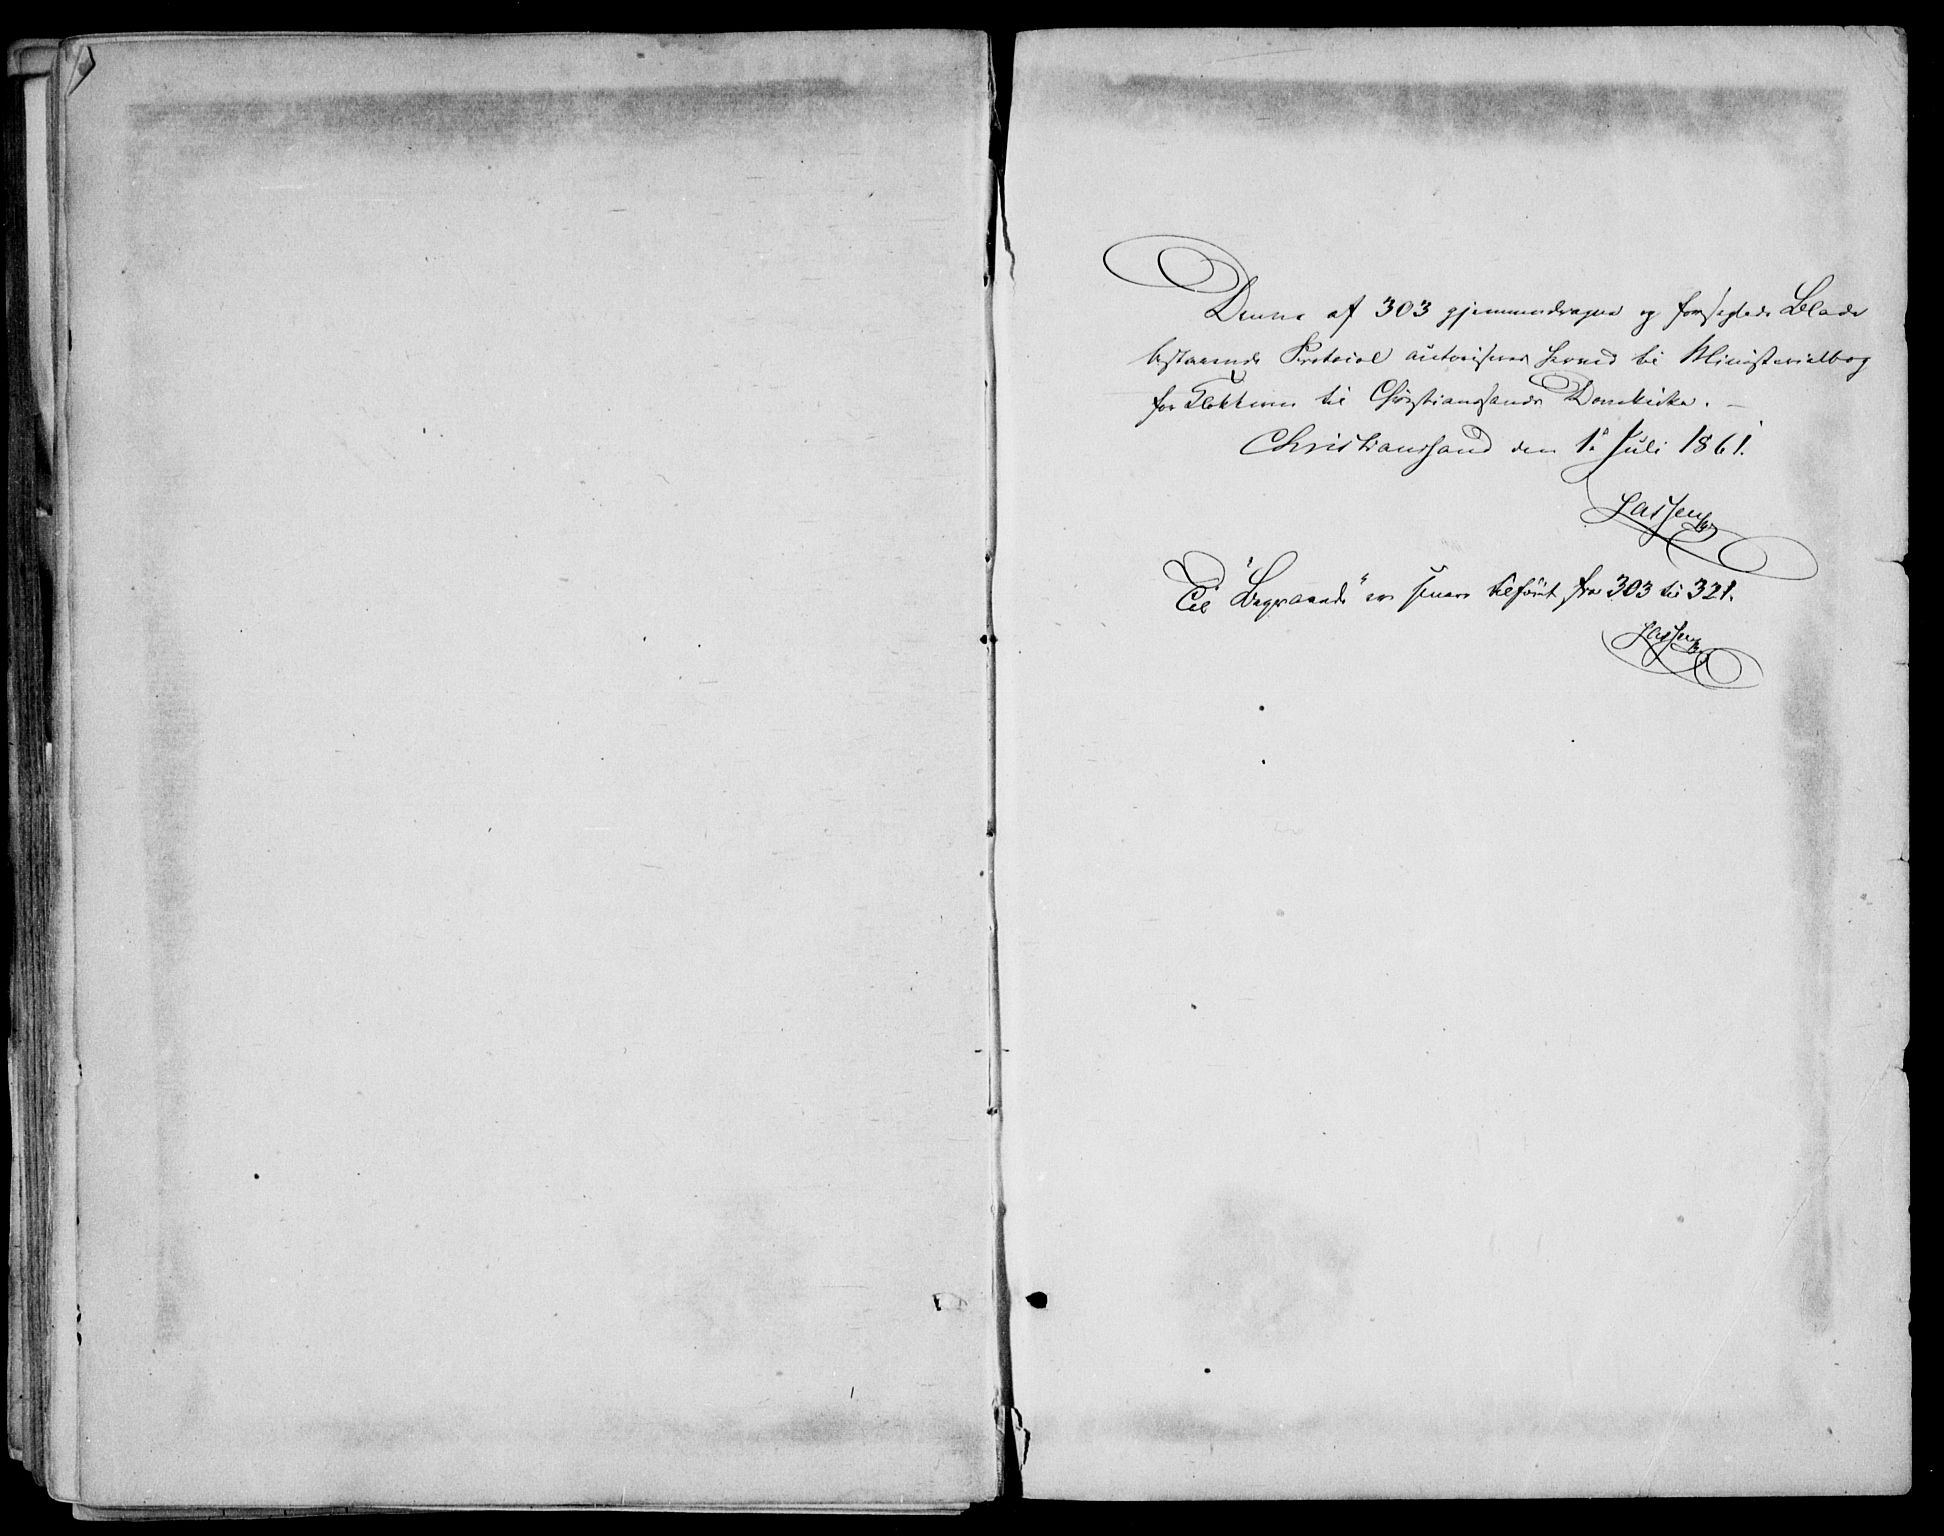 Denne af 303 gjennemdragne og forseglede Blade
bestaaende Protocol autoriseres herved til Ministerialbog
for Klokkeren til Christianssands Domkirke. —
Christianssand den 1ste Juli 1861.
Lassen
Til "Begravede" er senere tilføiet fra 303 til 321.
Lassen